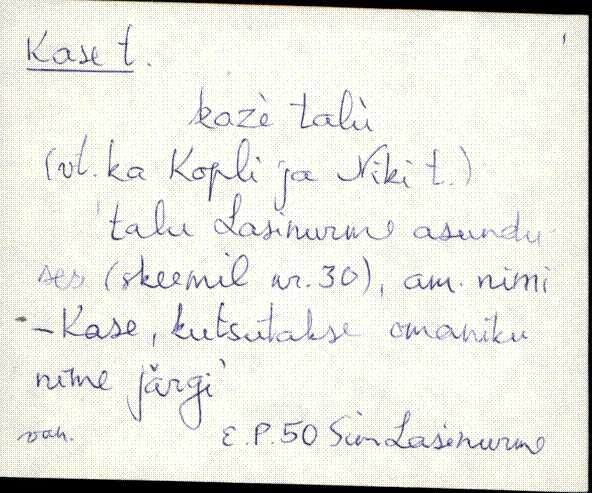 Kase t.
kazè talù
(vt. ka Kopli ja Niki t.)
'talu Lasinurme asundu-
ses (skeemil nr. 30), am. nimi
– Kase, kutsutakse omaniku
nime järgi'
van. E.P. 50 Sim Lasinurme